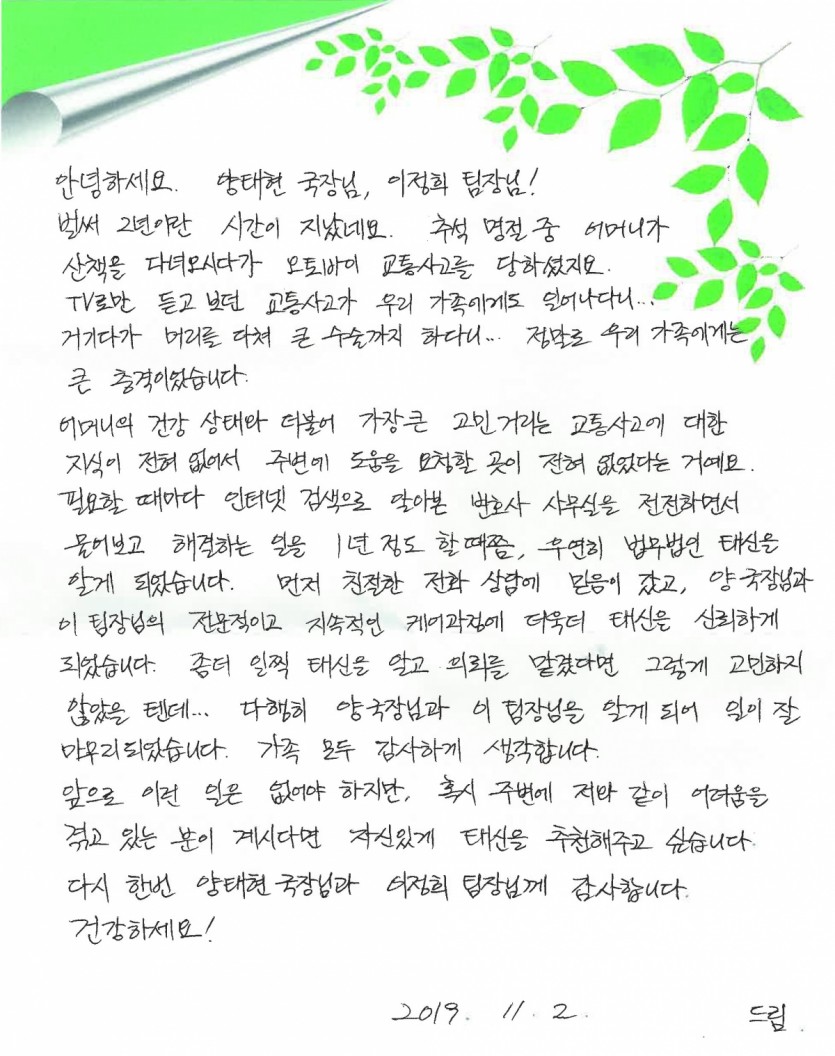 안녕하세요. 양태현 국장님, 이정희 팀장님!
벌써 2년이란 시간이 지났네요. 추석 명절 중 어머니가
산책을 다녀오시다가 오토바이 교통사고를 당하셨지요.
TV로만 듣고 보던 교통사고가 우리 가족에게도 일어나다니...
거기다가 머리를 다쳐 큰 수술까지 하다니... 정말로 우리 가족에게는
큰 충격이었습니다.
어머니의 건강 상태와 더불어 가장 큰 고민거리는 교통사고에 대한
지식이 전혀 없어서 주변에 도움을 요청할 곳이 전혀 없었다는 거예요.
필요할 때마다 인터넷 검색으로 알아본 변호사 사무실을 전전하면서
물어보고 해결하는 일을 1년 정도 할 때쯤, 우연히 법무법인 태신을
알게 되었습니다. 먼저 친절한 전화 상담에 믿음이 갔고, 양 국장님과
이 팀장님의 전문적이고 지속적인 케어과정에 더욱더 태신을 신뢰하게
되었습니다. 좀더 일찍 태신을 알고 의뢰를 맡겼다면 그렇게 고민하지
않았을 텐데... 다행히 양국장님과 이 팀장님을 알게 되어 일이 잘
마무리되었습니다. 가족 모두 감사하게 생각합니다.
앞으로 이런 일은 없어야 하지만, 혹시 주변에 저와 같이 어려움을
겪고 있는 분이 계시다면 자신있게 태신을 추천해주고 싶습니다.
다시 한번 양태현 국장님과 이정희 팀장님께 감사합니다.
건강하세요!
2019. 11. 2. 드림